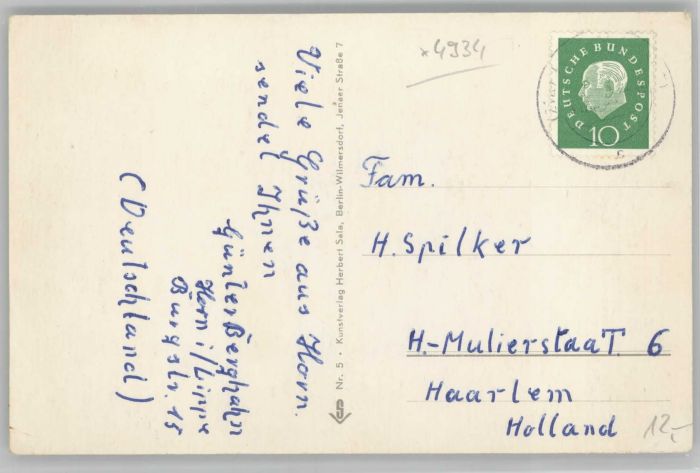 Viele Grüße aus Horn.
sendet Ihnen
Günter Berghahn
Horn i/Lippe
Burgstr. 15
(Deutschland)
Nr. 5 · Kunstverlag Herbert Sala, Berlin-Wilmersdorf, Jenaer Straße 7
*4934
DEUTSCHE BUNDESPOST
10
Fam.
H. Spilker
H.-Mulierstaat. 6
Haarlem
Holland
12,-